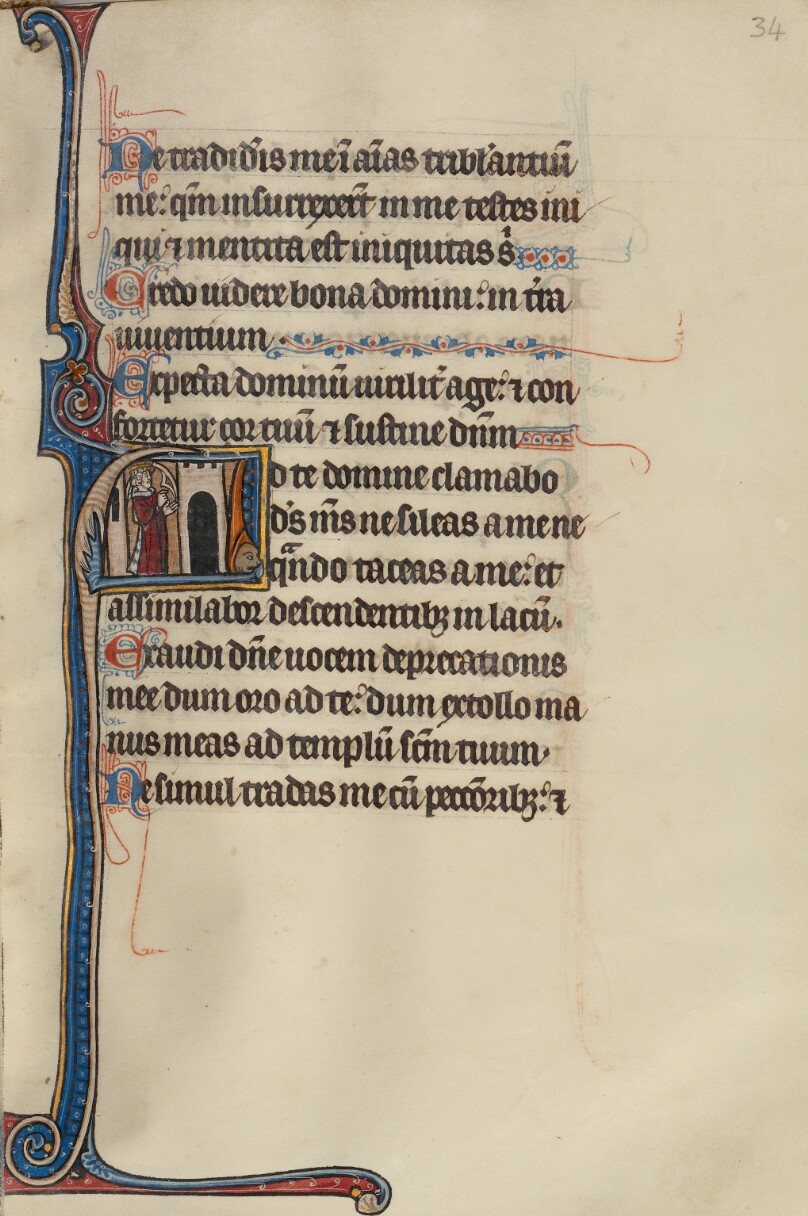 34
Ne tradid'is me ī aīas tribl'antiū
me: qm̄ insurrexer̄t in me testes ini
qui ⁊ mentita est iniquitas s̉
Credo uidere bona domini: in t̄ra
uiuentium.
Expecta dominū uirilit̄ age: ⁊ con
fortetur cor tuū ⁊ sustine dn̄m
Ad te domine clamabo
d's m̄s ne sileas a me ne
qn̄do taceas a me: et
assimilabor descendentibꝫ in lacū.
Exaudi dn̄e uocem deprecationis
mee dum oro ad te: dum extollo ma
nus meas ad templū sc̄m tuum.
Ne simul tradas me cū pecc̄oribꝫ: ⁊